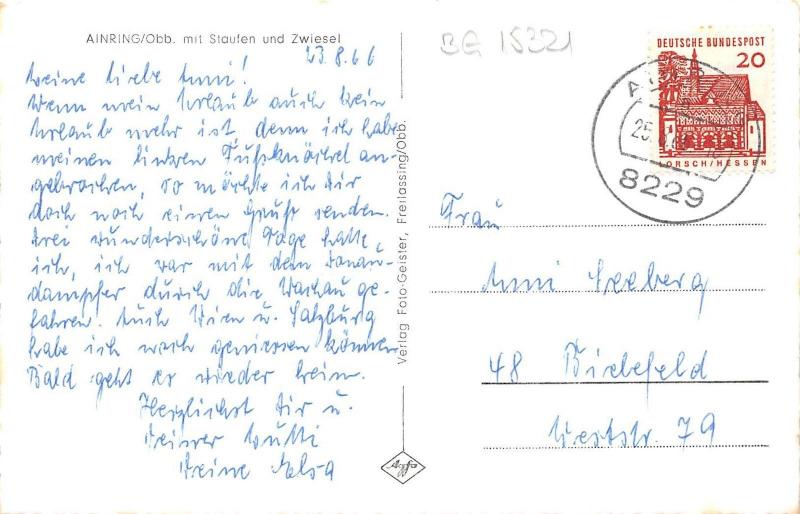 AINRING/Obb. mit Staufen und Zwiesel
23.8.66
Meine liebe Anni!
Wenn mein Urlaub auch kein
Urlaub mehr ist, denn ich habe
meinen linken Fußknöchel an-
gebrochen, so möchte ich Dir
doch noch einen Gruß senden.
Drei wunderschöne Tage hatte
ich, ich war mit dem Donau-
dampfer durch die Wachau ge-
fahren. Auch Wien u. Salzburg
habe ich noch geniessen können
Bald geht es wieder heim.
Herzlichst Dir u.
Deiner Mutti
Deine Elsa
Verlag Foto-Geister, Freilassing/Obb.
Agfa
BG 15321
DEUTSCHE BUNDESPOST
20
LORSCH/HESSEN
25.
8229
Frau
Anni Seeberg
48 Bielefeld
Weststr. 79